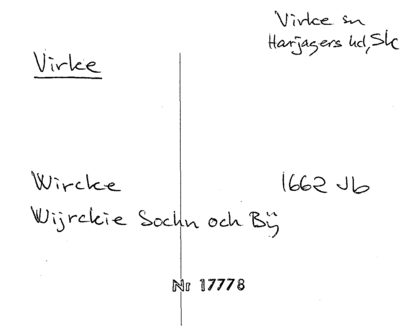 Virke sn
Harjagers hd, Sk
Virke
Wircke 1662 Jb
Wijrckie Sochn och Bÿ
Nr 17778